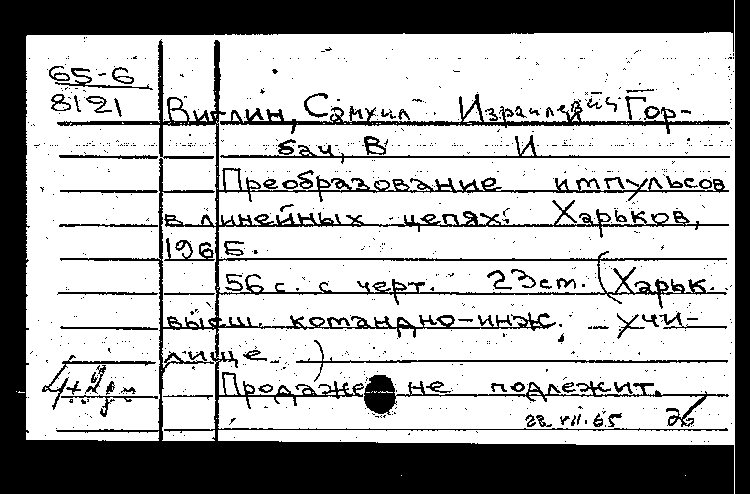 65-6
8121
Виглин, Самуил Израилевич Гор-
бач, В И
Преобразование импульсов
в линейных цепях. Харьков,
1965.
56 с. с черт. 23 см. (Харьк.
высш. командно-инж. учи-
лище )
Продаже не подлежит.
22 VII.65